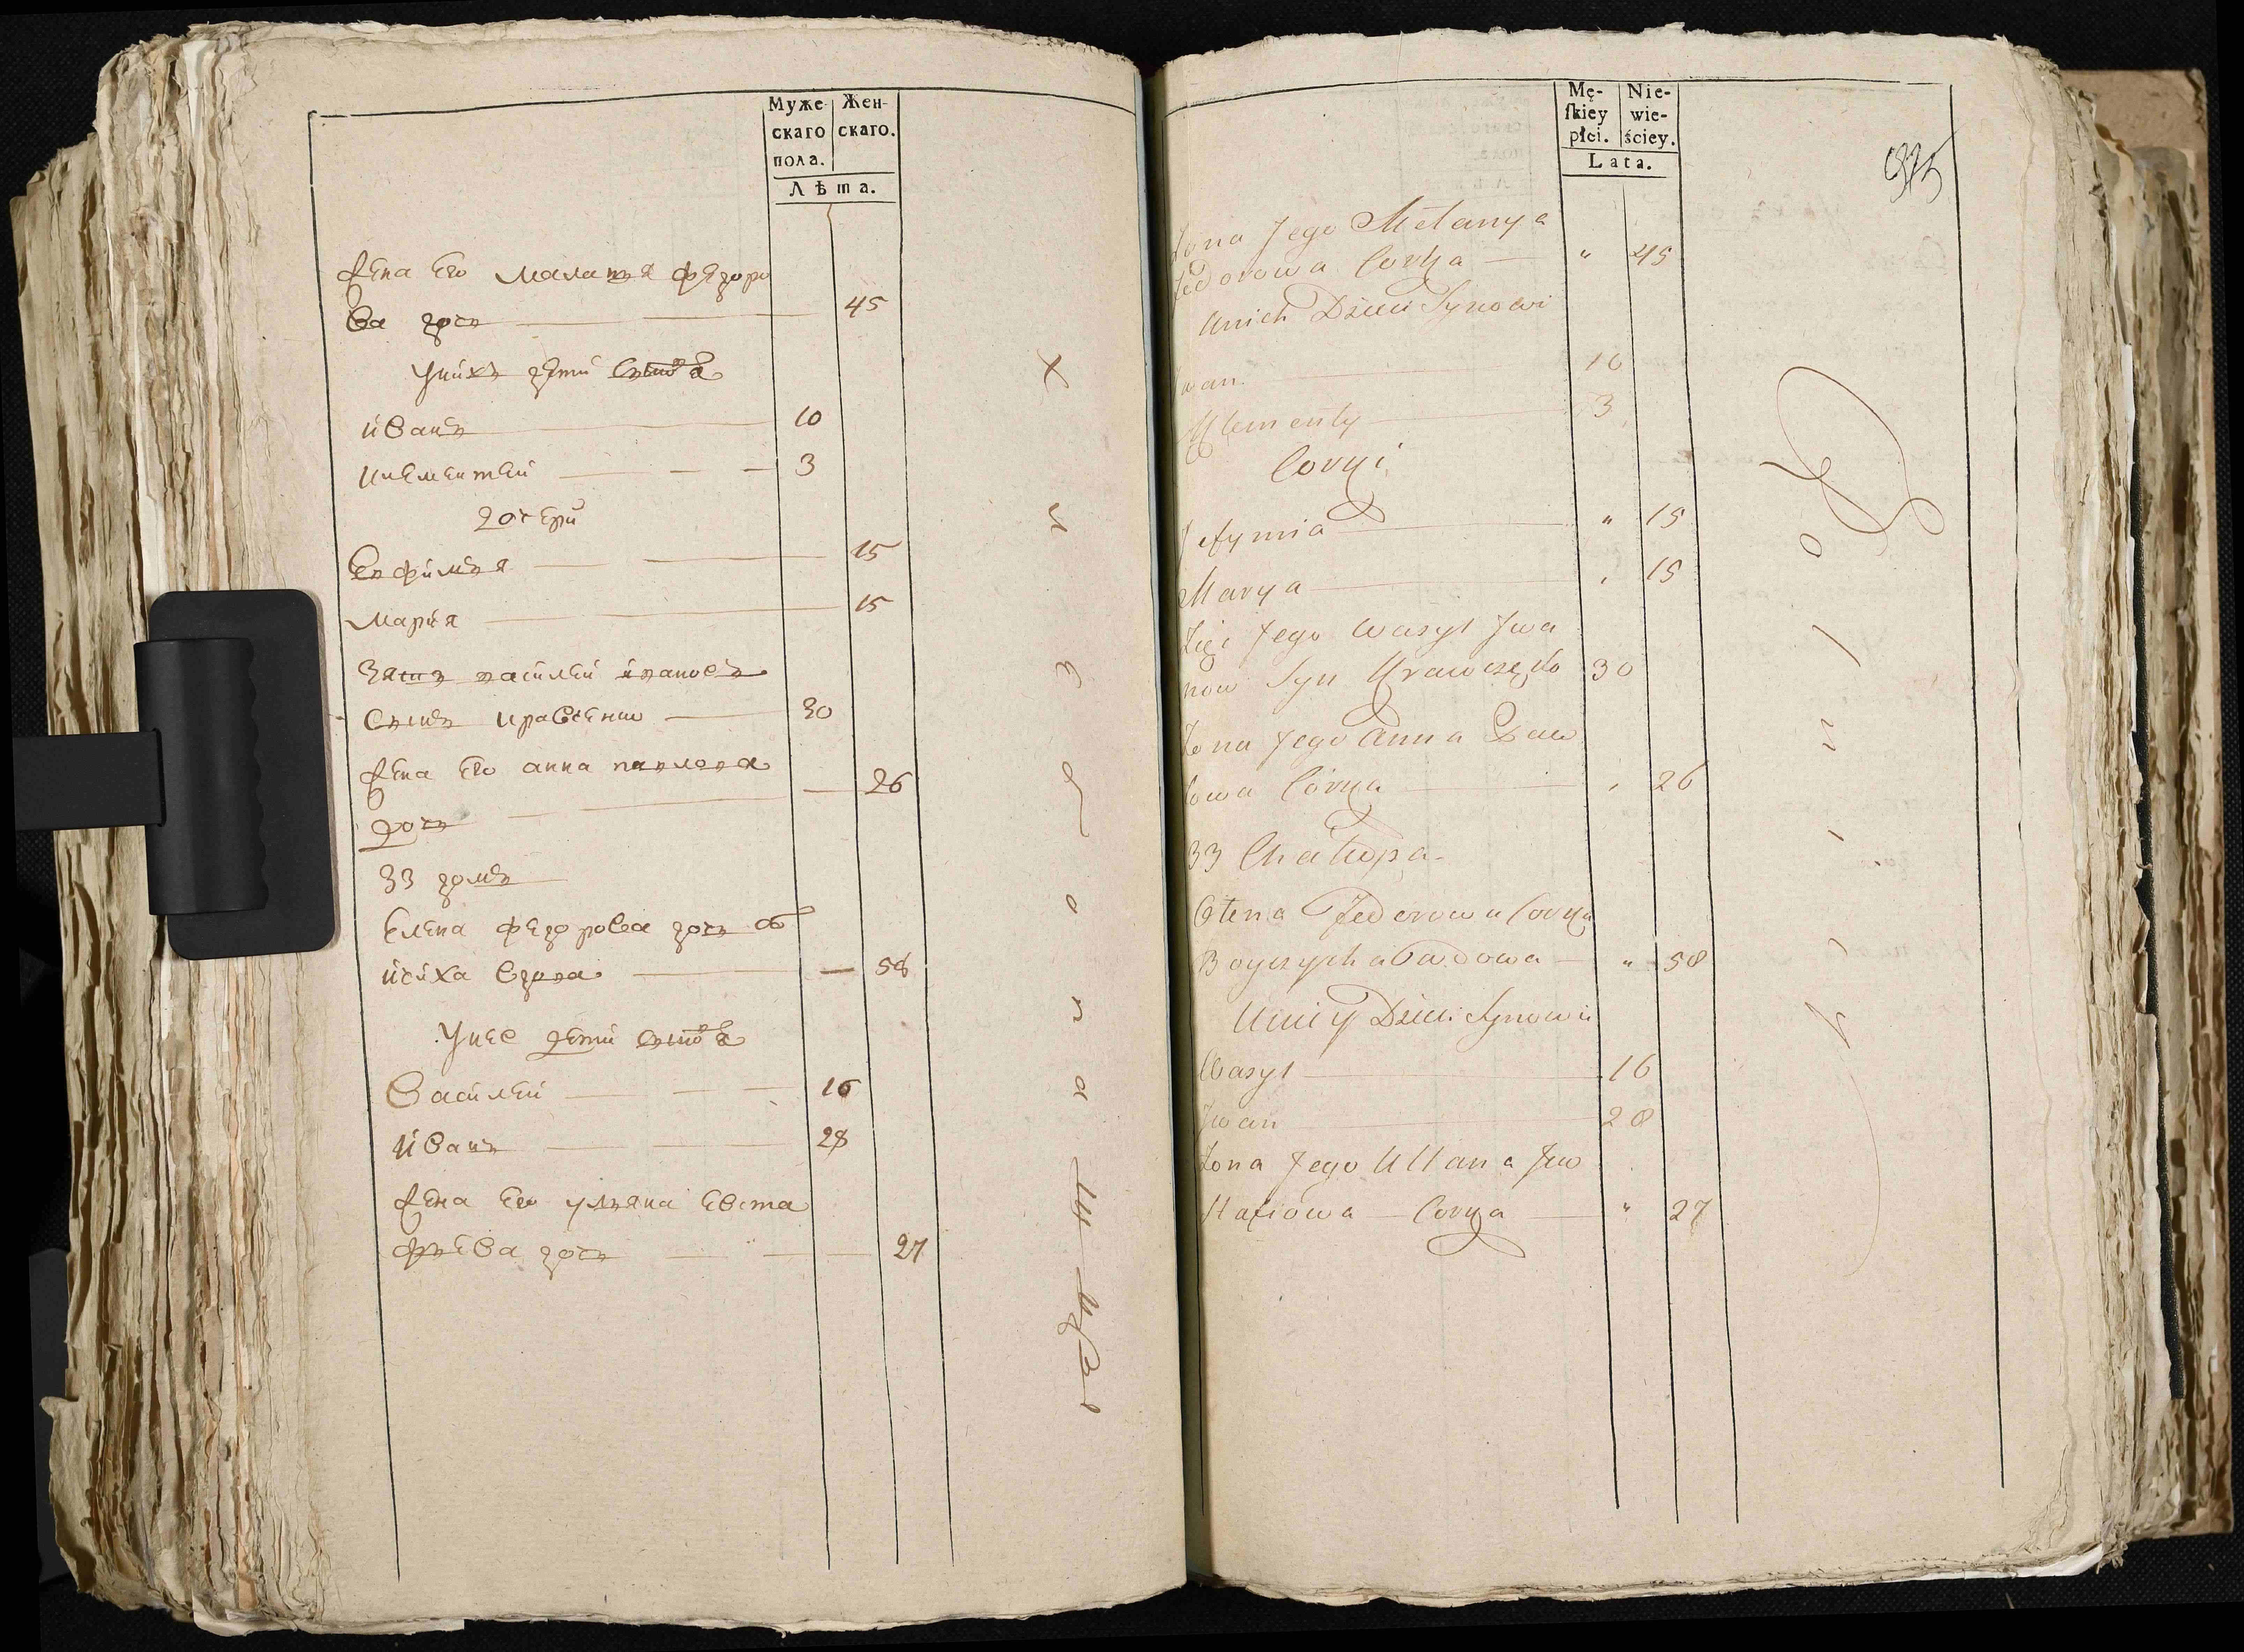 Муже-
скаго
пола.
Жен-
скаго.
Лѣта.
жена его маланья федоро
ва дочь 45
у них дети сынов
иванъ 10
климентей 3
дочери
Евфимья 15
марія 15
зять василей ивановъ
сынъ кравченко 30
жена его анна павлова
дочь 26
33 домъ
Елена федорова дочь
вдова 58
у нее дети сынов
василей 16
иванъ 28
жена его ульяна Евста
фьева дочь 27
Mę-
skiey
płci.
Nie-
wie-
ściey.
Lata.
Żona Jego Melanya
Fedorowa Corka " 45
Unich Dzieci Synowi
Iwan 10
Klementy 3
Corki
Jefymia " 15
Marya 15
Zięć Jego Wasyl Iwa
now Syn Krawczęko 30
Żona Jego Anna Paw
łowa Córka 26
33 Chałupa
Ołena Fedorowa Corka
Boyczycha Wadowa " 58
Uniey Dzieci Synowie
Wasyl 16
Iwan 28
Żona Jego Ullana Jew
stafiowa Corka " 27